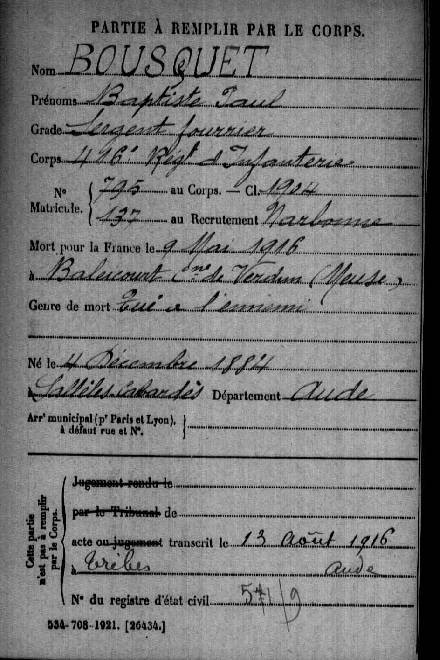 PARTIE À REMPLIR PAR LE CORPS.
Nom BOUSQUET
Prénoms Baptiste Paul
Grade Sergent fourrier
Corps 496e Régt d'Infanterie
N° Matricule. 795 au Corps. — Cl. 1904
137 au Recrutement Narbonne
Mort pour la France le 9 Mai 1916
à Baleicourt Cne de Verdun (Meuse)
Genre de mort Tué à l'ennemi
Né le 4 Décembre 1884
à Cabardès Département Aude
Arrt municipal (pr Paris et Lyon),
à défaut rue et N°.
Cette partie
n'est pas à remplir
par le Corps.
Jugement rendu le
par le Tribunal de
acte ou jugement transcrit le 13 Août 1916
à Trèbes Aude
N° du registre d'état civil
534-708-1921. [26434.]